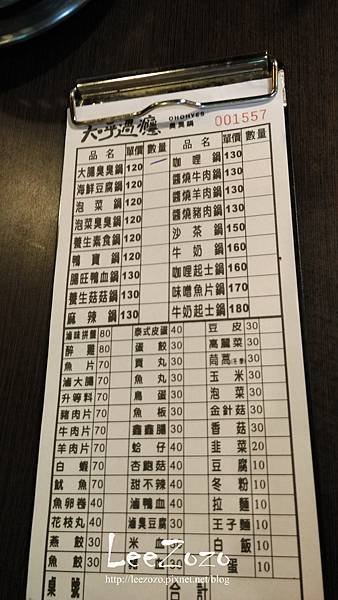 大呼過癮 OHOHYES 臭臭鍋 001557
品名 單價 數量 品名 單價 數量
大腸臭臭鍋 120 咖哩鍋 130
海鮮豆腐鍋 120 醬燒牛肉鍋 130
泡菜鍋 120 醬燒羊肉鍋 130
泡菜臭臭鍋 120 醬燒豬肉鍋 130
養生素食鍋 120 沙茶鍋 150
鴨寶鍋 130 牛奶鍋 160
腸旺鴨血鍋 130 咖哩起士鍋 160
養生菇菇鍋 130 味噌魚片鍋 170
麻辣鍋 130 牛奶起士鍋 180
滷味拼盤 80 泰式皮蛋 40 豆皮 30
醉雞 80 蛋餃 30 高麗菜 30
魚片 70 貢丸 30 茼蒿(冬季) 30
滷大腸 70 魚丸 30 玉米 30
升等料 70 鳥蛋 30 泡菜 30
豬肉片 70 魚板 30 金針菇 30
牛肉片 70 鑫鑫腸 30 香菇 30
羊肉片 70 蛤仔 40 韭菜 20
白蝦 70 杏鮑菇 40 豆腐 10
魷魚 70 甜不辣 40 冬粉 10
魚卵卷 40 滷鴨血 40 拉麵 10
花枝丸 40 滷臭豆腐 30 王子麵 10
燕餃 30 米血 30 白飯 10
蛋 10
桌號 合計
LeeZozo
http://leezozo.pixnet.net/blog